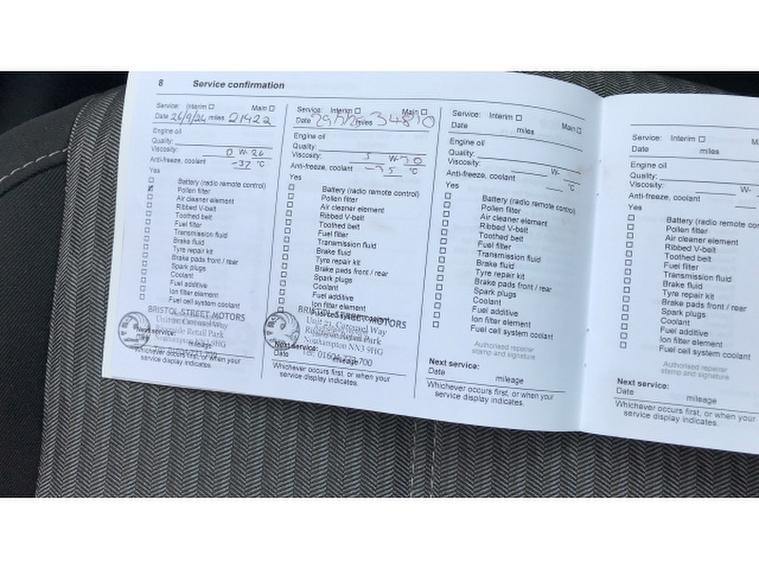 8 Service confirmation
Service: Interim Main
Date 26/9/24 miles 21422
Engine oil
Quality:
Viscosity: 0 W-20
Anti-freeze, coolant -37 °C
Yes
Battery (radio remote control)
Pollen filter
Air cleaner element
Ribbed V-belt
Toothed belt
Fuel filter
Transmission fluid
Brake fluid
Tyre repair kit
Brake pads front / rear
Spark plugs
Coolant
Fuel additive
Ion filter element
Fuel cell system coolant
BRISTOL STREET MOTORS
Unit 21, Carousel Way
Riverside Retail Park
Northampton NN3 9HG
Next service:
mileage
Whichever occurs first, or when your
service display indicates.
Service: Interim Main
Date miles 34810
Engine oil
Quality:
Viscosity: W-
Anti-freeze, coolant °C
Yes
Battery (radio remote control)
Pollen filter
Air cleaner element
Ribbed V-belt
Toothed belt
Fuel filter
Transmission fluid
Brake fluid
Tyre repair kit
Brake pads front / rear
Spark plugs
Coolant
Fuel additive
Ion filter element
BRISTOL STREET MOTORS
Unit 21, Carousel Way
Riverside Retail Park
Northampton NN3 9HG
Next service:
Date mileage
Whichever occurs first, or when your
service display indicates.
Service: Interim Main
Date miles
Engine oil
Quality:
Viscosity: W-
Anti-freeze, coolant °C
Yes
Battery (radio remote control)
Pollen filter
Air cleaner element
Ribbed V-belt
Toothed belt
Fuel filter
Transmission fluid
Brake fluid
Tyre repair kit
Brake pads front / rear
Spark plugs
Coolant
Fuel additive
Ion filter element
Fuel cell system coolant
Authorised repairer
stamp and signature
Next service:
Date mileage
Whichever occurs first, or when your
service display indicates.
Service: Interim
Date miles
Engine oil
Quality:
Viscosity: W-
Anti-freeze, coolant
Yes
Battery (radio remote co
Pollen filter
Air cleaner element
Ribbed V-belt
Toothed belt
Fuel filter
Transmission fluid
Brake fluid
Tyre repair kit
Brake pads front / rear
Spark plugs
Coolant
Fuel additive
Ion filter element
Fuel cell system coolant
Authorised repairer
stamp and signature
Next service:
Date mileage
Whichever occurs first, or when your
service display indicates.